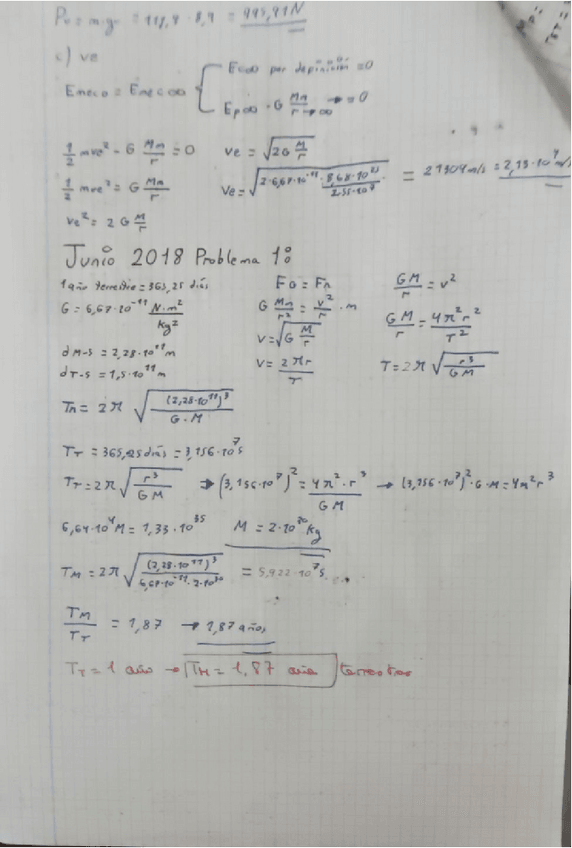 Pr = m·gr = 118,9 · 8,4 = 995,91N
c) ve
Emec0 = Emec∞ { Ec∞ por definición = 0
Ep∞ - G Mm/r r→∞ → = 0
1/2 mve² - G Mm/r = 0
ve = √(2G M/r)
1/2 mve² = G Mm/r
ve = √(2·6,67·10⁻¹¹ · 8,68·10²⁵/2,55·10⁷) = 21304m/s = 2,13·10⁴ m/s
ve² = 2 G M/r
Junio 2018 Problema 1:
1 año terrestre = 365,25 días
G = 6,67·10⁻¹¹ N·m²/kg²
d M-S = 2,28·10¹¹ m
dT-S = 1,5·10¹¹ m
FG = Fn
G Mm/r² = v²/r · m
v = √(G M/r)
v = 2πr/T
GM/r = v²
GM/r = 4π²r²/T²
T = 2π √(r³/GM)
Tm = 2π √((2,28·10¹¹)³/G·M)
TT = 365,25 días = 3,156·10⁷ s
TT = 2π √(r³/GM) → (3,156·10⁷)² = 4π²·r³/GM → (3,156·10⁷)²·G·M = 4π²r³
6,64·10⁴ M = 1,33·10³⁵ M = 2·10³⁰ kg
TM = 2π √((2,28·10¹¹)³/6,67·10⁻¹¹·2·10³⁰) = 5,922·10⁷ s
TM/TT = 1,87 → 1,87 años
TT = 1 año → TM = 1,87 años terrestres